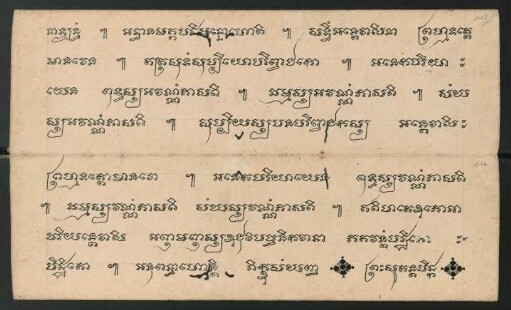 អទ្ធានមគ្គបដិបន្នោហោតិ ៕ សទ្ធឹអន្តេវាសិនា ព្រហ្មទត្តេ
មាណវេន ៕ តត្រសុទំសុប្បិយោបរិព្វាជកោ ៕ អនេកបរិយា
យេន ពុទ្ធស្សអវណ្ណំភាសតិ ៕ ធម្មស្សអវណ្ណំភាសតិ ៕ សំឃ
ស្សអវណ្ណំភាសតិ ៕ សុប្បិយស្សបនបរិព្វាជកស្ស អន្តេវាសិ
ព្រហ្មទត្តោមាណវោ ៕ អនេកបរិយាយេន ពុទ្ធស្សវណ្ណំភាសតិ
៕ ធម្មស្សវណ្ណំភាសតិ សំឃស្សវណ្ណំភាសតិ ៕ ឥតិហតេឧភោអាច
រិយន្តេវាសិ អញ្ញមញ្ញស្សឧជុវិបច្ចនិកវាទា ភគវន្តំបិដ្ឋិតោ
បិដ្ឋិតោ ៕ អនុពន្ធាហោន្តិ ភិក្ខុសំឃញ្ច ព្រះសុតន្តបិដក